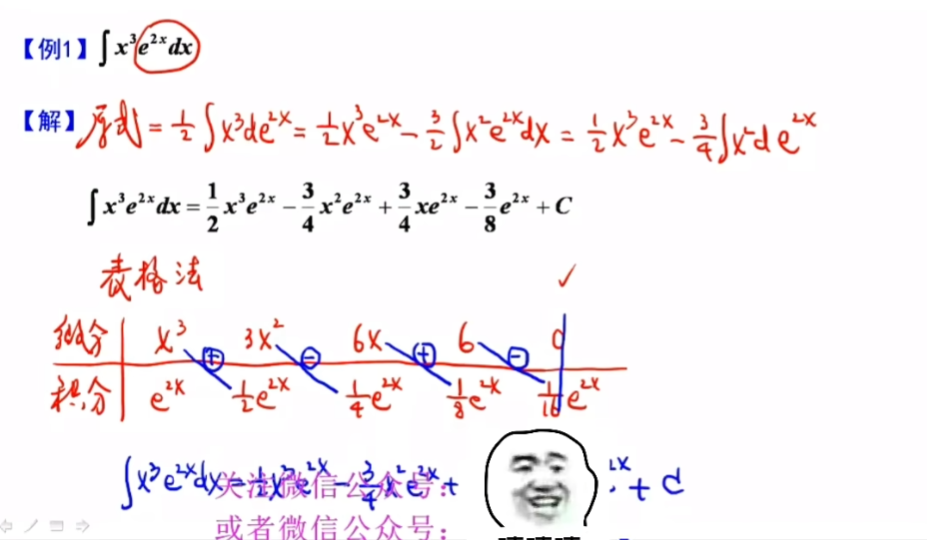 【例1】∫x³e²ˣdx
【解】原式 = 1/2 ∫x³de²ˣ = 1/2 x³e²ˣ - 3/2 ∫x²e²ˣdx = 1/2 x³e²ˣ - 3/4 ∫x²de²ˣ
∫x³e²ˣdx = 1/2 x³e²ˣ - 3/4 x²e²ˣ + 3/4 xe²ˣ - 3/8 e²ˣ + C
表格法 ✓
微分 x³ ⊕ 3x² ⊖ 6x ⊕ 6 ⊖ 0
积分 e²ˣ 1/2 e²ˣ 1/4 e²ˣ 1/8 e²ˣ 1/16 e²ˣ
∫x³e²ˣdx = 1/2 x³e²ˣ - 3/4 x²e²ˣ + 2x + C
关注微信公众号：
或者微信公众号：